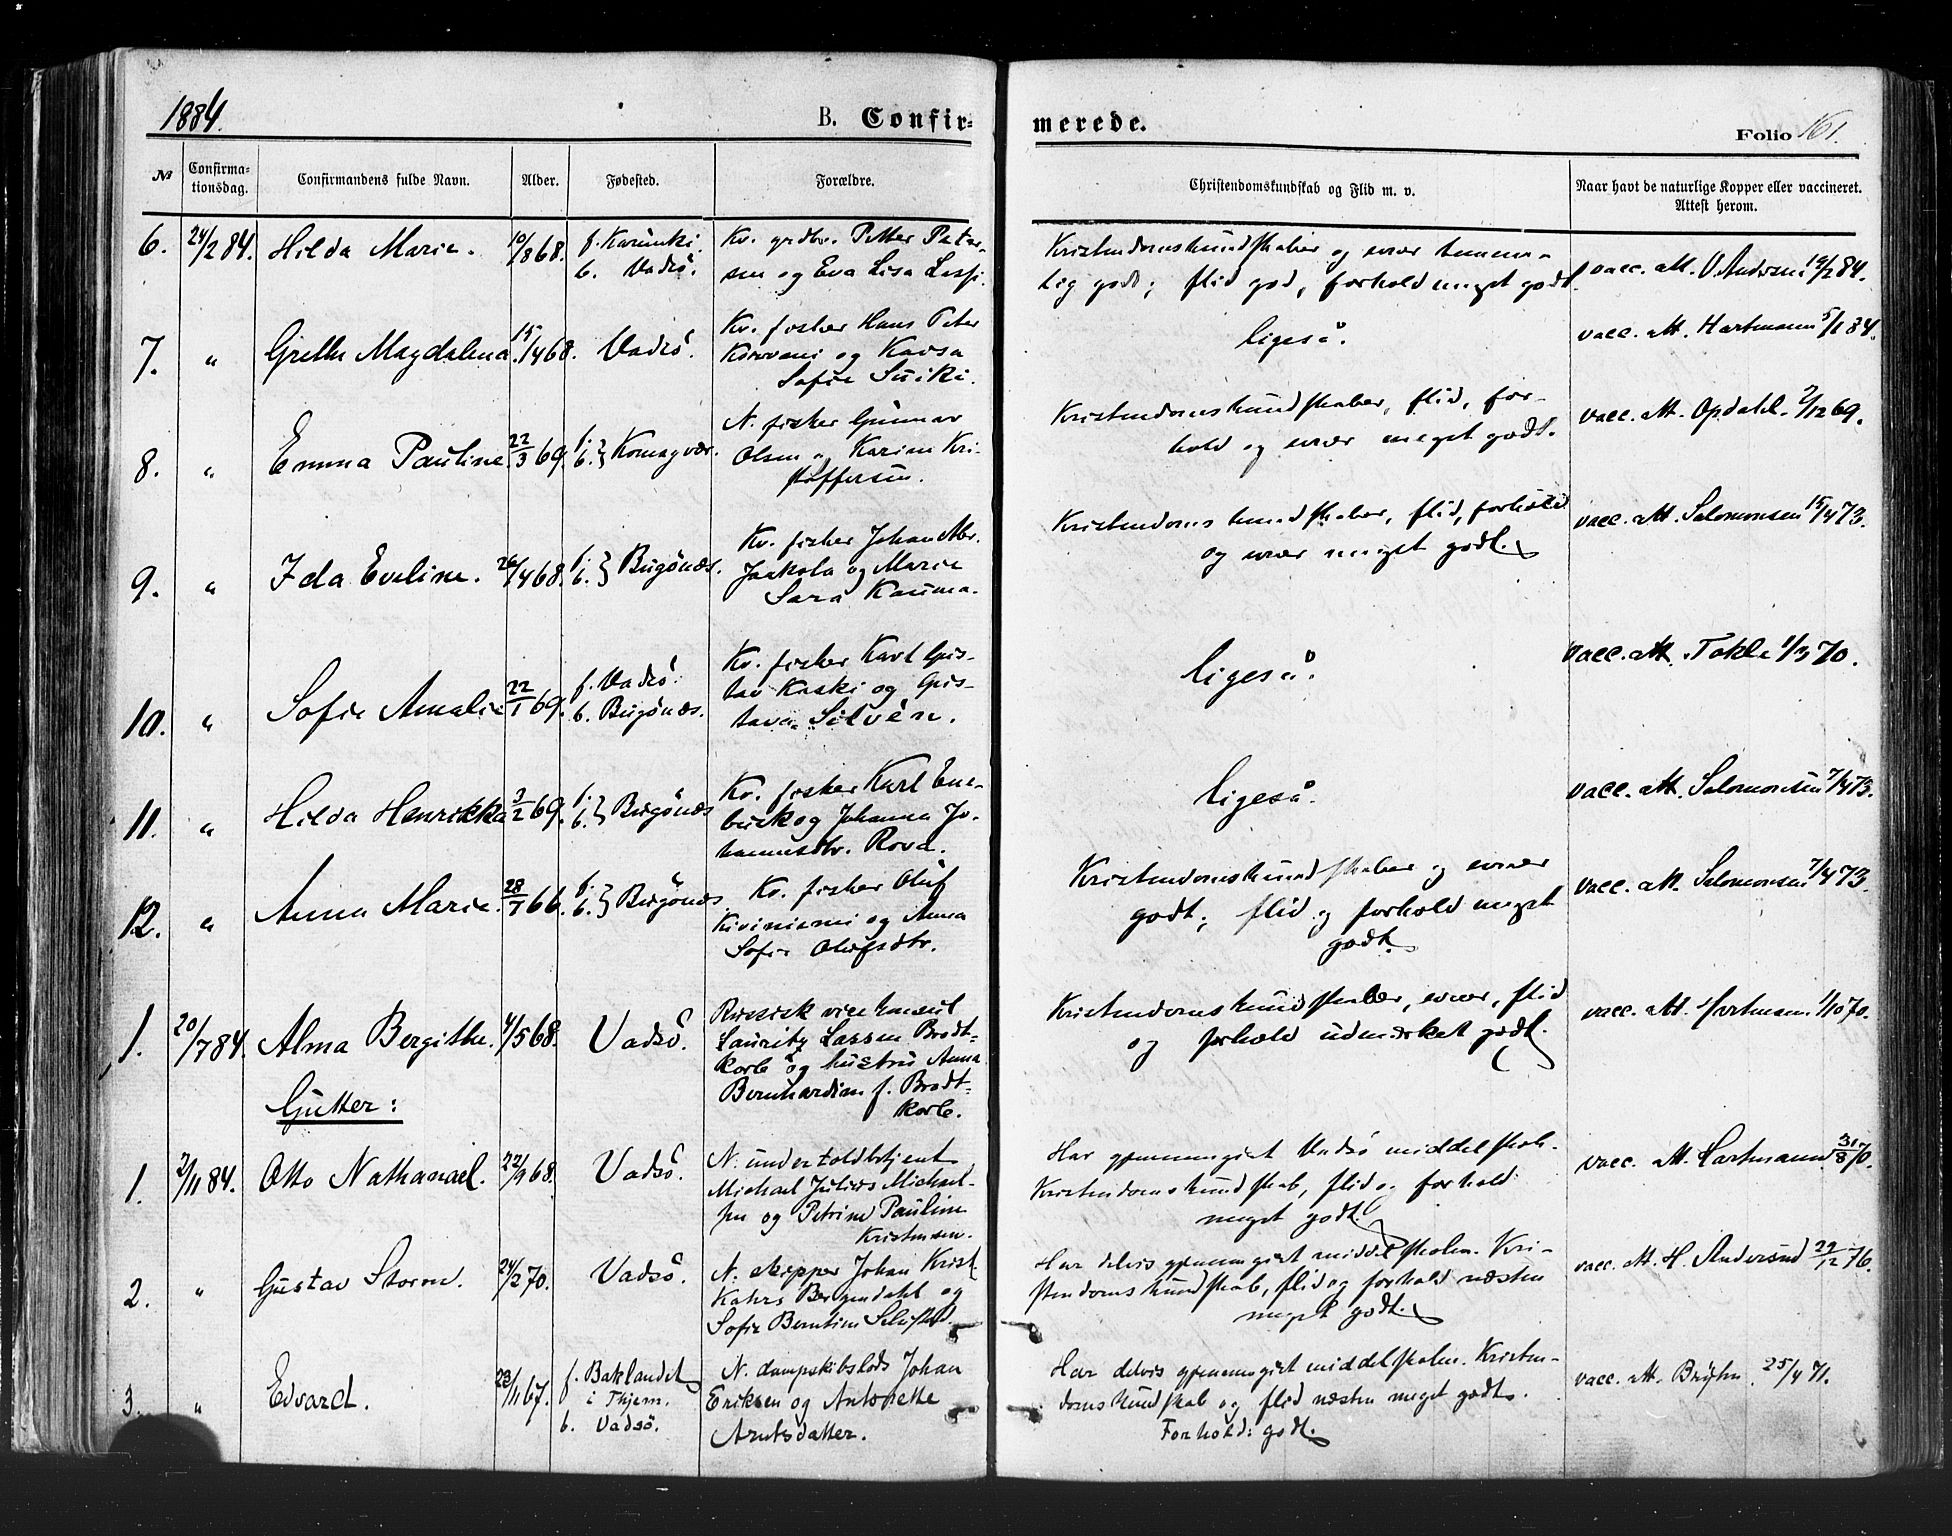 1884.
B. Confirmerede.
Folio 161.
№ Confirmationsdag. Confirmandens fulde Navn. Alder. Fødested. Forældre. Christendomskundskab og Flid m. v. Naar havt de naturlige Kopper eller vaccineret. Attest herom.
6. 24/2 84. Hilda Marie. 10/8 68. f. Karunki. b. Vadsö.
Kv. grdbr. Petter Peter-
sen og Eva Lisa
Kristendomskundskaber og evner temme-
lig godt; flid god, forhold meget godt.
vacc. att. O. Andersen 19/2 84.
7. " Grethe Magdalena. 15/4 68. Vadsö.
Kv. fisker Hans Peter
og Kaisa
Sofie Suiki.
ligeså.
vacc. att. Hartmann 5/1 84.
8. " Emma Pauline. 22/3 69. f. b. } Komagvær.
N. fisker Gunnar
Olsen og Karine Kri-
stoffersen.
Kristendomskundskaber, flid, for-
hold og evner meget godt.
vacc. att. Opdahl. 2/12 69.
9. " Ida Eveline. 26/4 68. f. b. } Bugönæs.
Kv. fisker Johan Abr.
Jaakola og Marie
Sara Kauma.
Kristendomskundskaber, flid, forhold
og evner meget godt.
vacc. att. Salomonsen 15/4 73.
10. " Sofie Amalie 22/1 69. f. Vadsö. b. Bugönæs.
Kv. fisker Karl Gus-
tav Kaski og Gus-
tava Silvén.
ligeså.
vacc. att. Takle 1/3 70.
11. " Hilda Henrikka 3/2 69. f. b. } Bugönæs
Kv. fisker Karl Ene-
busk og Johanna Jo-
hannesdtr. Rova.
ligeså.
vacc. att. Salomonsen 7/4 73.
12. " Anna Marie. 28/7 66. f. b. } Bugönæs
Kv. fisker Oluf
Kiviniemi og Anna
Sofie Olufsdtr.
Kristendomskundskaber og evner
godt; flid og forhold meget
godt.
vacc. att. Salomonsen 7/4 73.
1. 20/7 84. Alma Bergithe. 4/5 68. Vadsö.
Russisk vicekonsul
Lauritz Lassen Brodt-
korb og hustru Anna
Bernhardine f. Brodt-
korb.
Kristendomskundskaber, evner, flid
og forhold udmærket godt.
vacc. att. Hartmann 1/10 70.
Gutter:
1. 2/11 84. Otto Nathanael. 22/9 68. Vadsö.
N. undertoldbetjent
Michael Julius Michael-
sen og Petrine Pauline
Kristensen.
Har gjennemgået Vadsö middelskole.
Kristendomskundskab, flid og forhold
meget godt.
vacc. att. Hartmann 31/8 70.
2. " Gustav Storm. 24/2 70. Vadsö.
N. skipper Johan Krist.
Kahrs Bergendahl og
Sofie Berntine
Har delvis gjennemgået middelskolen. Kri-
stendomskundskab, flid og forhold næsten
meget godt.
vacc. att. H. Andersen 29/12 76.
3. " Edvard. 23/11 67. f. Baklandet i Thjem. b. Vadsö.
N. dampskibslods Johan
Eriksen og Antonette
Arntsdatter.
Har delvis gjennemgået middelskolen. Kristen-
domskundskab og flid næsten meget godt.
Forhold: godt.
vacc. att. 25/4 71.